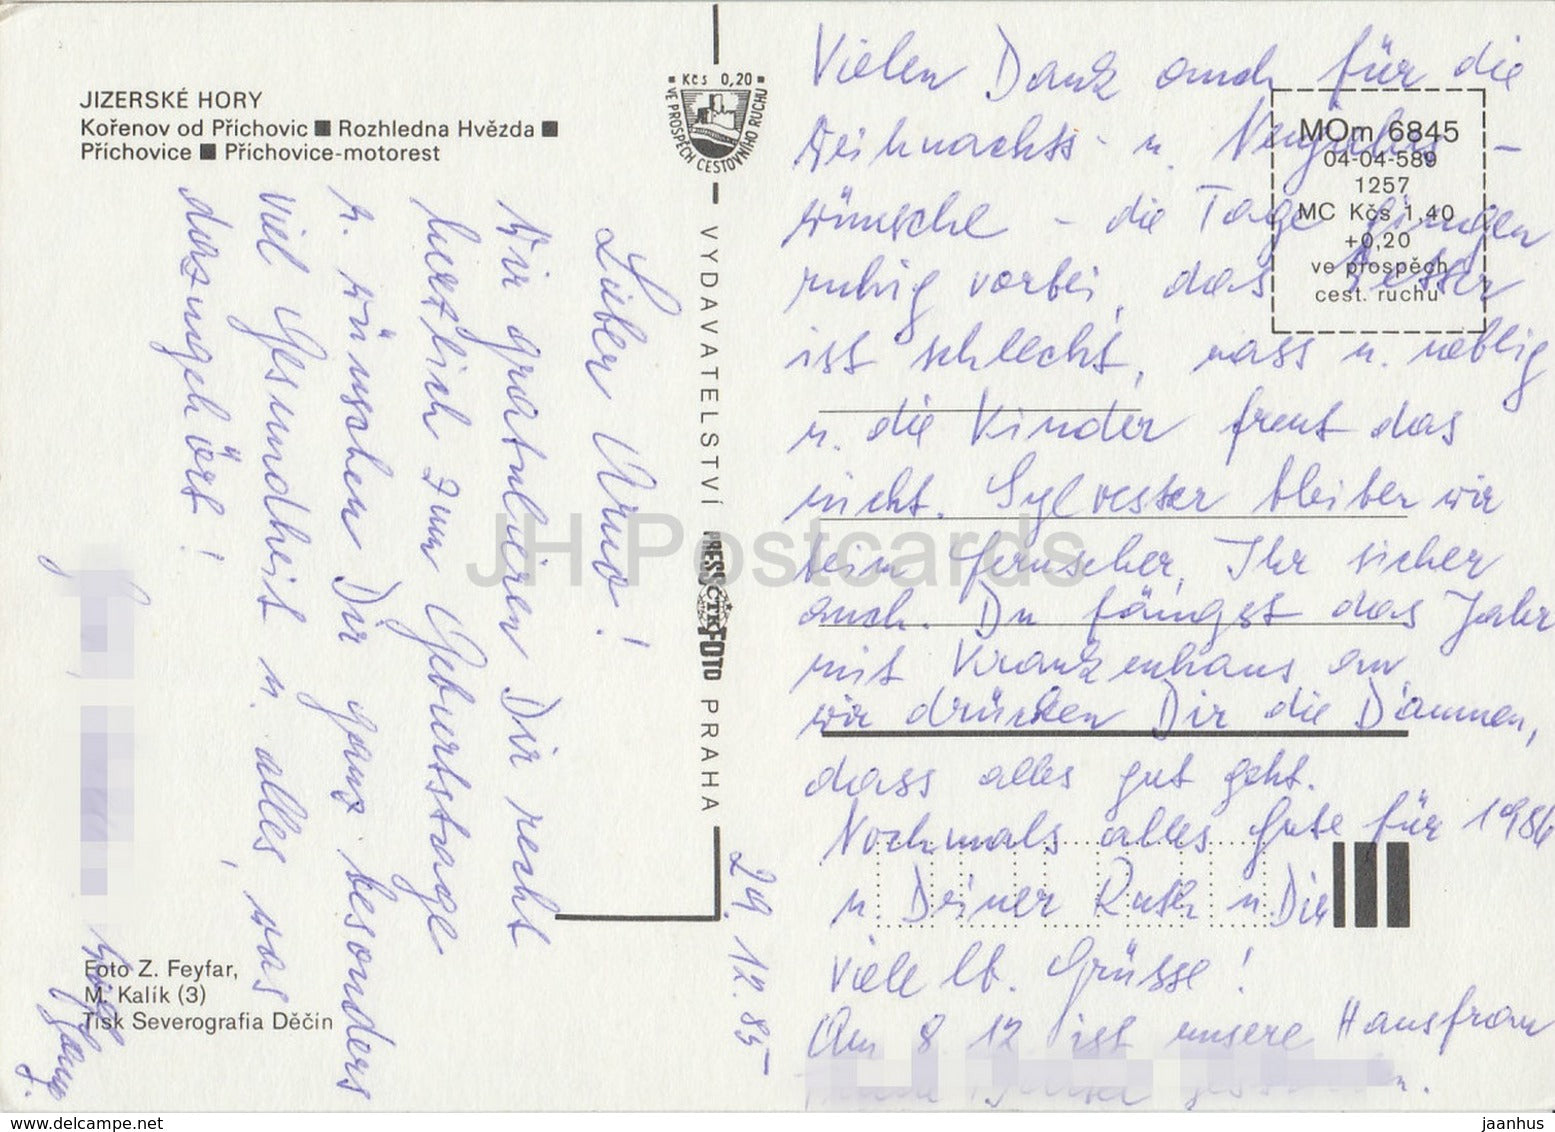 JIZERSKÉ HORY
Kořenov od Příchovic ■ Rozhledna Hvězda ■
Příchovice ■ Příchovice-motorest
Kčs 0,20
VE PROSPĚCH CESTOVNÍHO RUCHU
VYDAVATELSTVÍ PRESSFOTO PRAHA
ČTK
MOm 6845
04-04-589
1257
MC Kčs 1,40
+0,20
ve prospěch
cest. ruchu
29.12.85
Lieber Arno!
Wir gratulieren Dir recht
herzlich zum Geburtstage
u. wünschen Dir ganz besonders
viel Gesundheit u. alles, was
dazugehört!
Vielen Dank auch für die
Weihnachts- u. Neujahrs-
wünsche - die Tage gingen
ruhig vorbei, das Wetter
ist schlecht, nass u. neblig
u. die Kinder freut das
nicht. Sylvester bleiben wir
beim Fernseher, Ihr sicher
auch. Du fängst das Jahr
mit Krankenhaus an,
wir drücken Dir die Daumen,
dass alles gut geht.
Nochmals alles Gute für 1986
u. Deiner Ruth u. Dir
viele lb. Grüsse!
Am 8. 12 ist unsere Hausfrau
Foto Z. Feyfar,
M. Kalík (3)
Tisk Severografia Děčín
JH Postcards
www.delcampe.net
jaanhus